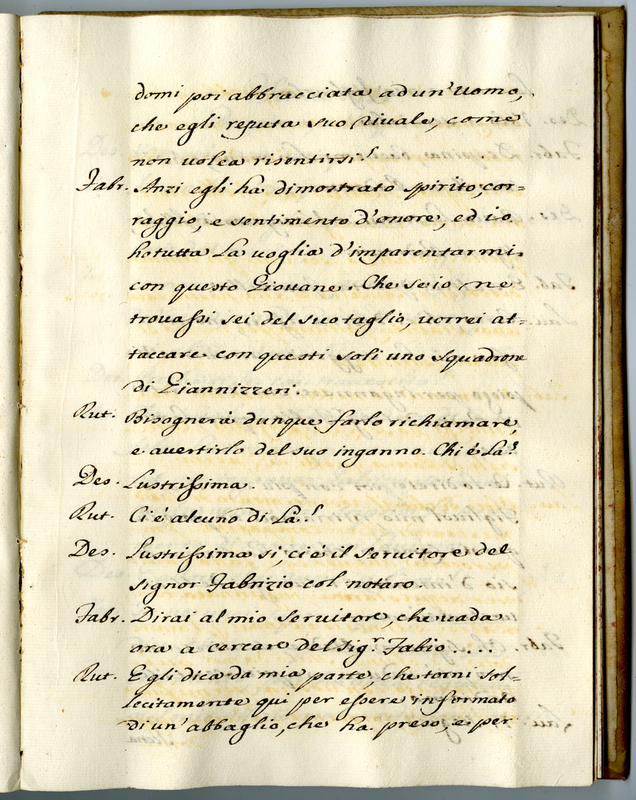 domi poi abbracciata ad un' uomo,
che egli reputa suo rivale, come
non volea risentirsi?
Fabr. Anzi egli ha dimostrato spirito, cor-
raggio, e sentimento d'onore, ed io
ho tutta La voglia d'imparentarmi
con questo Giovane. Che se io ne
trovassi sei del suo taglio, vorrei at-
taccare con questi soli uno squadrone
di Giannizzeri.
Rut. Bisognerà dunque farlo richiamare,
e avertirlo del suo inganno. Chi é Là?
Des. Lustrissima.
Rut. Ci é alcuno di Là?
Des. Lustrissima si, ci é il Servitore del
Signor Fabrizio col notaro
Fabr. Dirai al mio Servitore, che vada
ora a cercare del Sig.r Fabio ....
Rut. E gli dica da mia parte, che torni sol-
lecitamente qui per essere informato
di un' abbaglio, che ha preso, e per